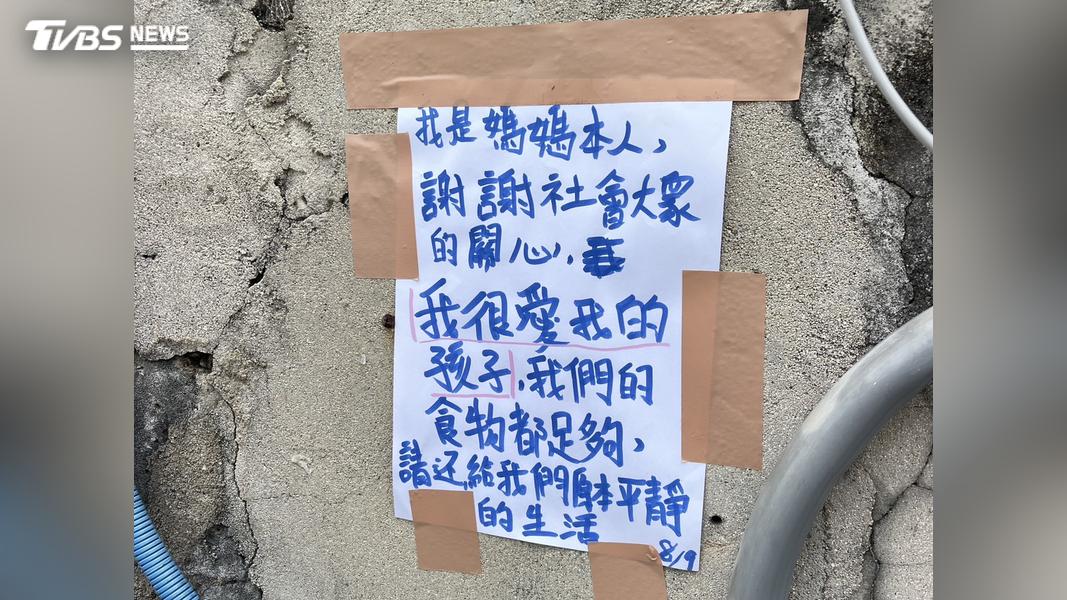 TVBS NEWS
我是媽媽本人，
謝謝社會大眾
的關心，
我很愛我的
孩子，我們的
食物都足夠，
請还給我們原本平靜
的生活
8/9